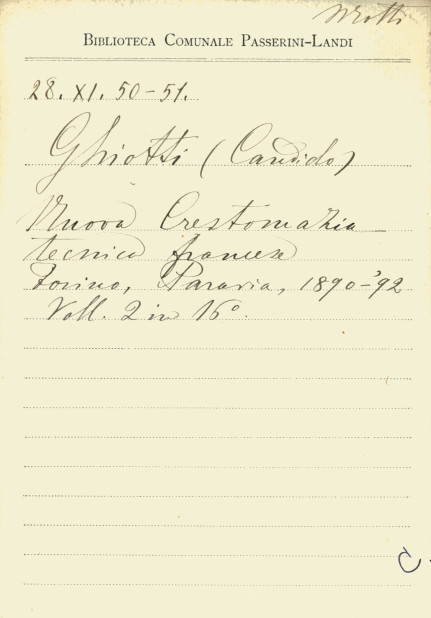 BIBLIOTECA COMUNALE PASSERINI-LANDI
28. XI. 50-51.
Ghiotti (Candido)
Nuova Crestomazia
tecnica francese
Torino, Paravia, 1890-'92
Voll. 2 in 16°.
C.